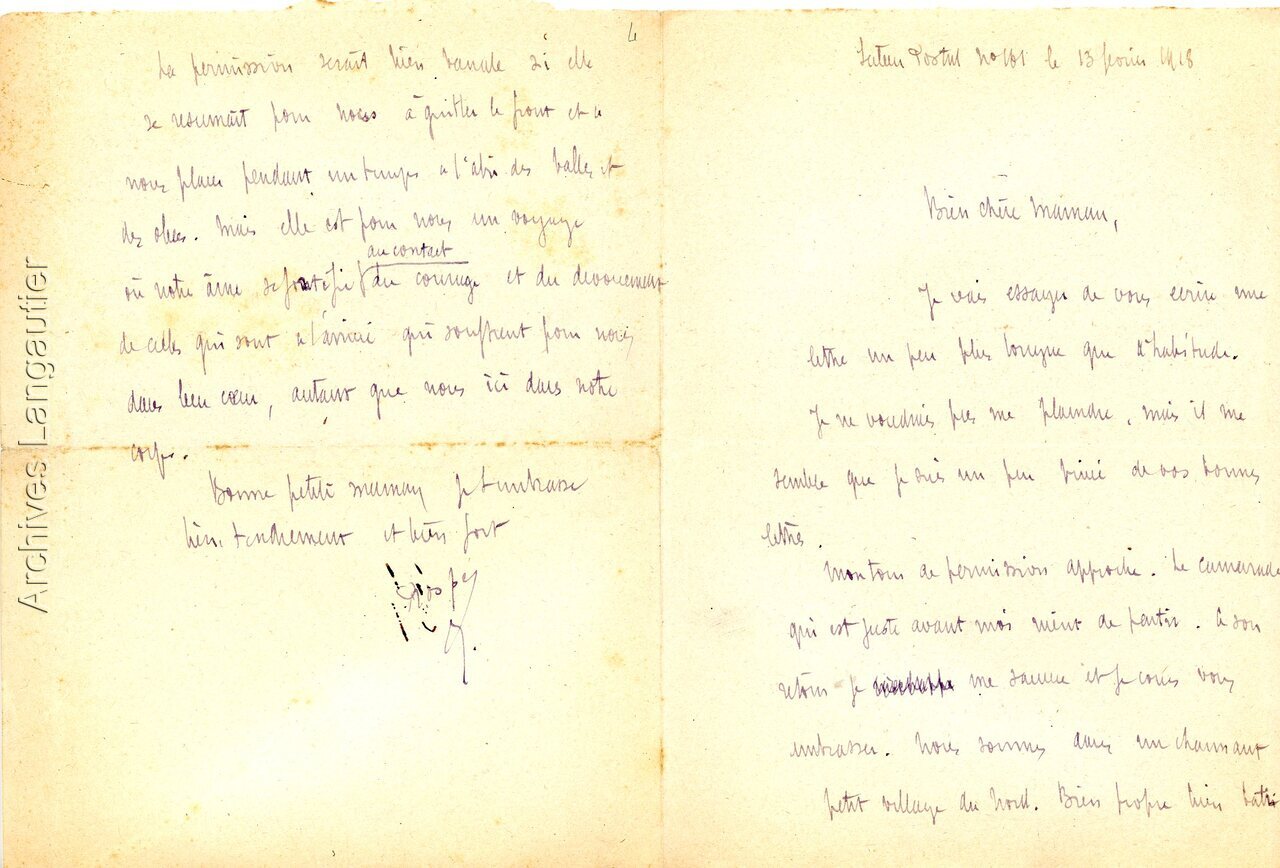 4
La permission serait bien banale si elle
se resumait pour nous à quitter le front et a
nous placer pendant un temps a l'abri des balles et
des obus. Mais elle est pour nous un voyage
au contact
où notre âme se fortifie du courage et du devouement
de celles qui sont a l'arrière qui souffrent pour nous
dans leur cœur, autant que nous ici dans notre
corps.
Bonne petite maman je t'embrasse
bien tendrement et bien fort
Secteur Postal No 181 le 13 février 1918
Bien chère Maman,
Je vais essayer de vous ecrire une
lettre un peu plus longue que d'habitude.
Je ne voudrais pas me plaindre, mais il me
semble que je suis un peu privé de vos bonnes
lettres.
Mon tour de permission approche. Le camarade
qui est juste avant moi vient de partir. A son
retour je me sauve et je cours vous
embrasser. Nous sommes dans un charmant
petit village du Nord. Bien propre bien bati
Archives Langautier